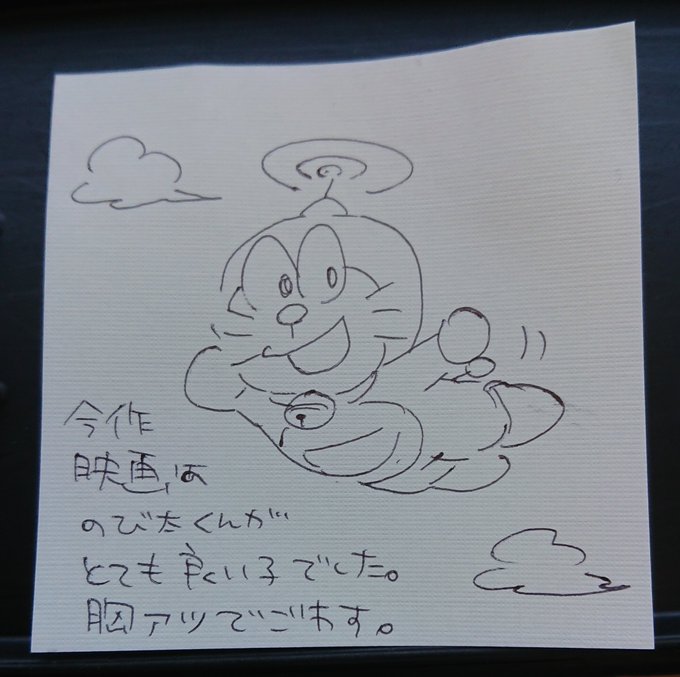 今作
映画は
のび太くんが
とても良い子でした。
胸アツでごわす。